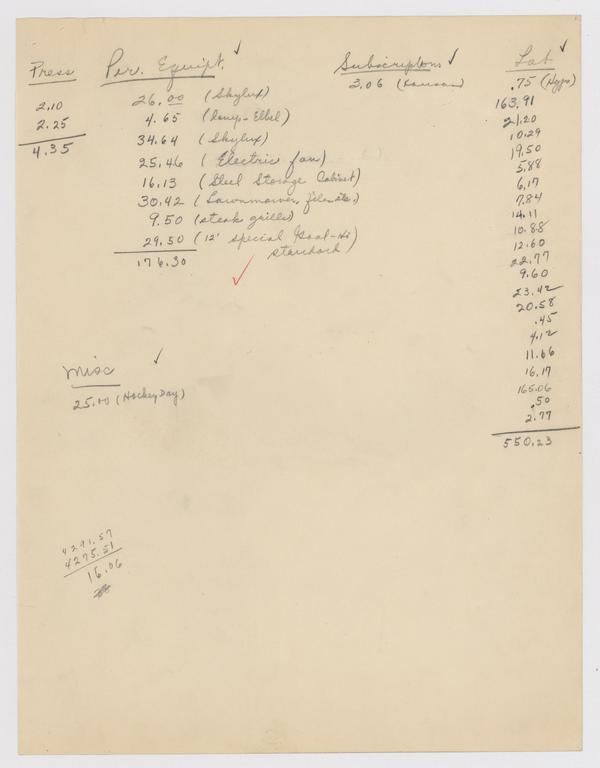 Press
2.10
2.25
4.35
Per. Equipt. ✓
26.00 (Skylux)
4.65 (
34.64 (Skylux)
25.46 (Electric fan)
16.13 (Steel Storage Cabinet)
30.42 (Lawnmower, file etc.)
9.50 (steak grille)
29.50 (12' special Goal-Hi
standard)
176.30
✓
Subscriptions ✓
3.06 (
Lab ✓
.75 (Hypo)
163.91
21.20
10.29
19.50
5.88
6.17
7.84
14.11
10.88
12.60
22.77
9.60
23.42
20.58
.45
4.12
11.66
16.17
165.06
.50
2.77
550.23
Misc ✓
25.00 (Hockey Day)
4291.57
4275.51
16.06